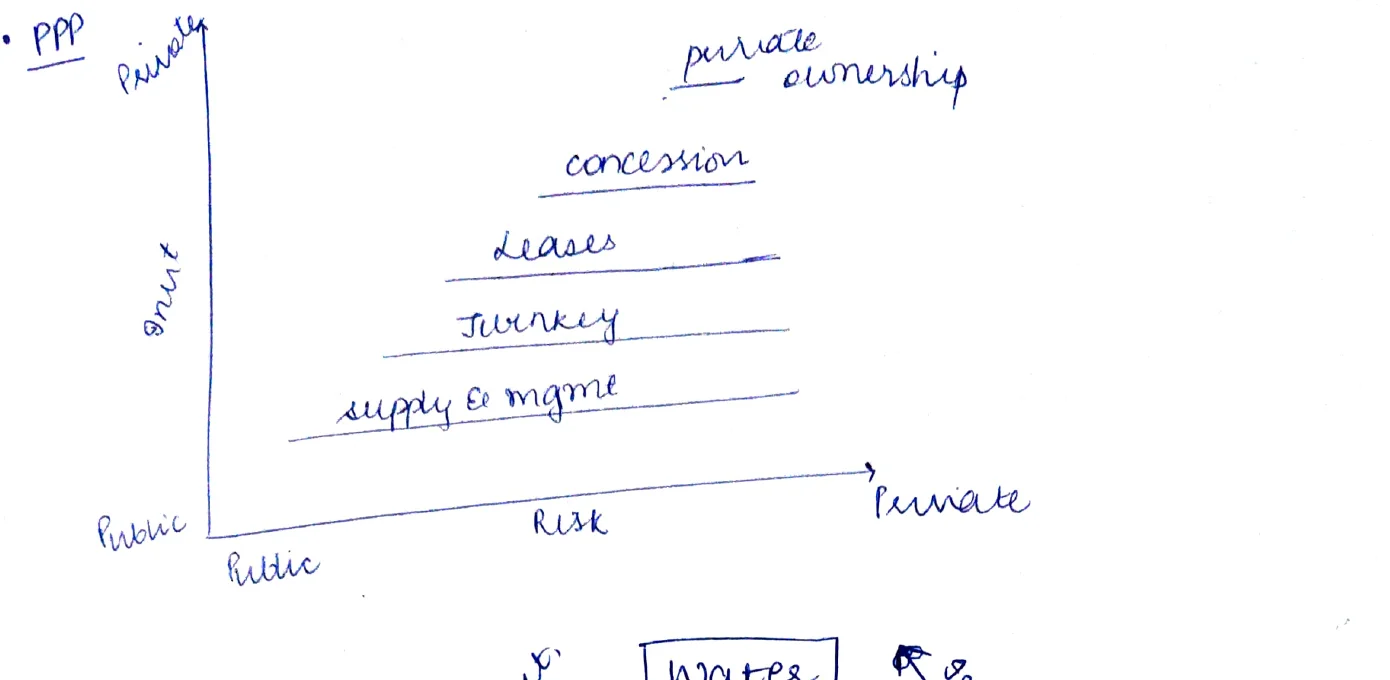 • PPP
Private
private
ownership
concession
Leases
Invt
Turnkey
supply & mgmt
Private
Public
Risk
Public
Water